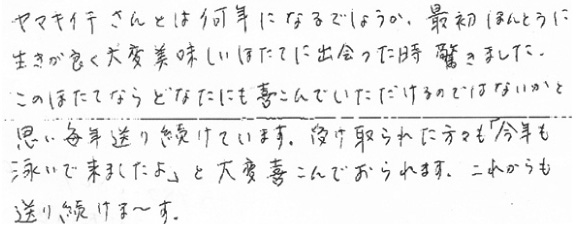 ヤマキイチさんとは何年になるでしょうか、最初ほんとうに
生きが良く大変美味しいほたてに出会った時驚きました。
このほたてならどなたにも喜こんでいただけるのではないかと
思い毎年送り続けています。受け取られた方々も「今年も
泳いで来ましたよ」と大変喜こんでおられます。これからも
送り続けま〜す。